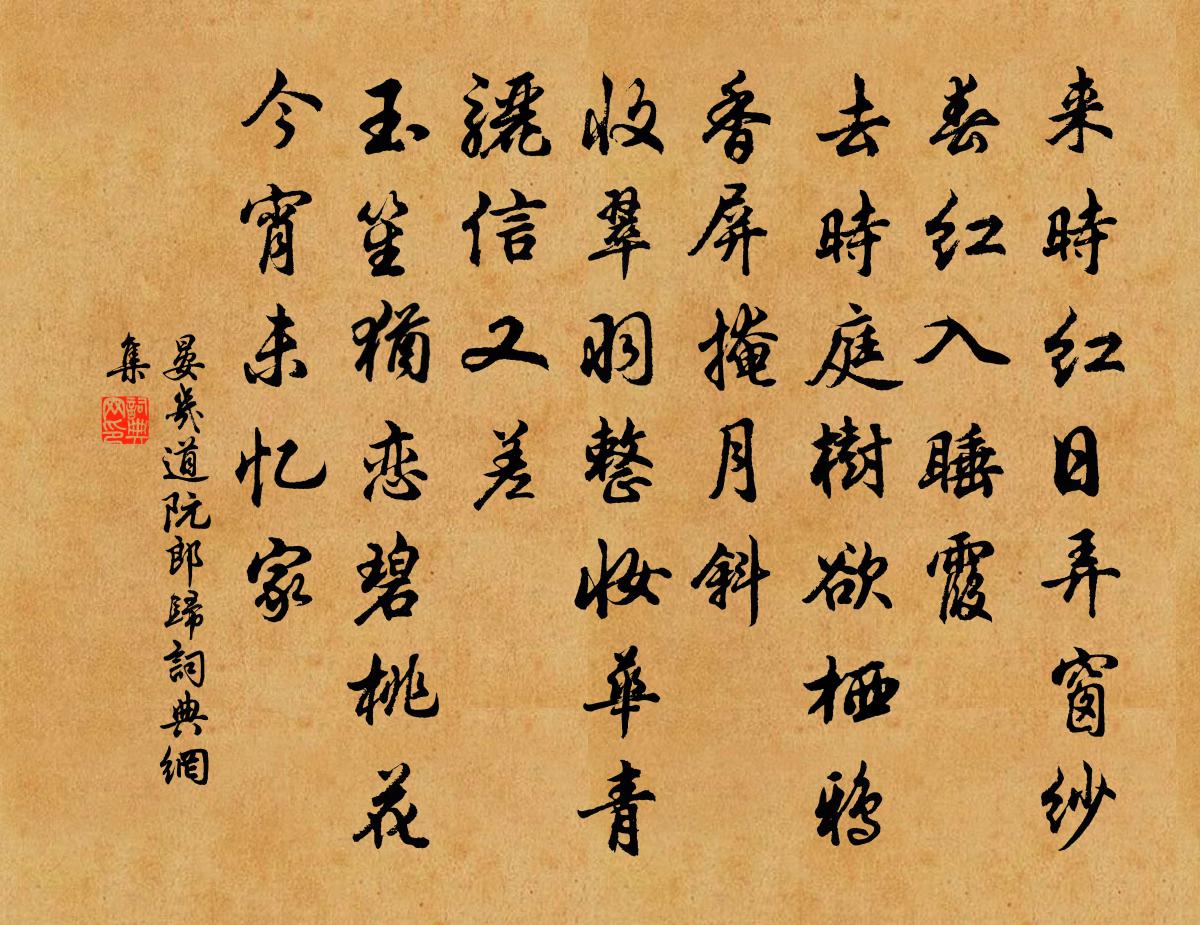 来時红日弄窗紗
春红入睡霞
去時庭樹欲栖鴉
香屏掩月斜
收翠羽整妝華青
驪信又差
玉笙猶恋碧桃花
今宵未忆家
晏幾道阮郎歸詞典網
集
詞典網印